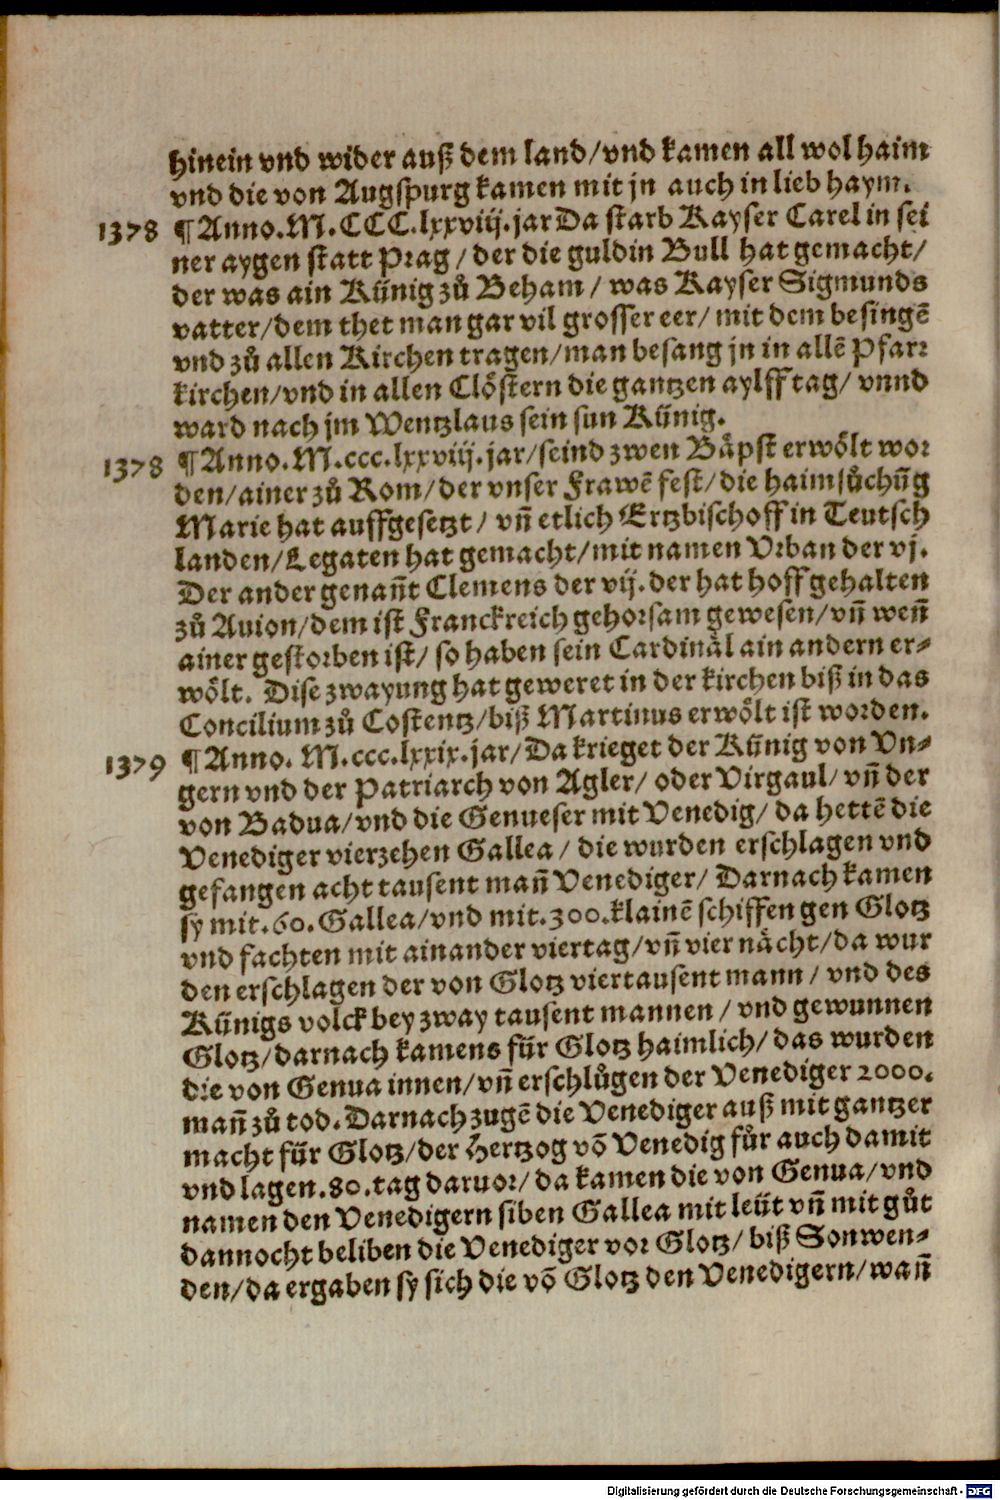 hinein vnd wider auß dem land/vnd kamen all wol haim
vnd die von Augspurg kamen mit jn auch in lieb haym.
1378 ¶ Anno.M.CCC.lxxviij.jar Da starb Kayser Carel in sei
ner aygen statt Prag / der die guldin Bull hat gemacht/
der was ain Künig zů Beham / was Kayser Sigmunds
vatter/dem thet man gar vil grosser eer/ mit dem besingē
vnd zů allen Kirchen tragen/man besang jn in allē Pfarr
kirchen/vnd in allen Clöstern die gantzen aylff tag/ vnnd
ward nach jm Wentzlaus sein sun Künig.
1378 ¶ Anno.M.ccc.lxxviij.jar/seind zwen Bäpst erwölt wor
den/ainer zů Rom/der vnser Frawē fest/die haimsůchūg
Marie hat auffgesetzt/ vñ etlich Ertzbischoff in Teutsch
landen/Legaten hat gemacht/mit namen Vrban der vj.
Der ander genañt Clemens der vij.der hat hoff gehalten
zů Auion/dem ist Franckreich gehorsam gewesen/vñ weñ
ainer gestorben ist/ so haben sein Cardinäl ain andern er-
wölt. Dise zwayung hat geweret in der kirchen biß in das
Concilium zů Costentz/biß Martinus erwölt ist worden.
1379 ¶ Anno. M.ccc.lxxix.jar/Da krieget der Künig von Vn-
gern vnd der Patriarch von Agler/ oder Virgaul/ vñ der
von Badua/vnd die Genueser mit Venedig/ da hettē die
Venediger vierzehen Gallea / die wurden erschlagen vnd
gefangen acht tausent mañ Venediger/ Darnach kamen
sy mit.60.Gallea/vnd mit.300.klainē schiffen gen Glotz
vnd fachten mit ainander viertag/vñ vier nächt/da wur
den erschlagen der von Glotz viertausent mann / vnd des
Künigs volck bey zway tausent mannen / vnd gewunnen
Glotz/darnach kamens für Glotz haimlich/das wurden
die von Genua innen/vñ erschlůgen der Venediger 2000.
mañ zů tod.Darnach zugē die Venediger auß mit gantzer
macht für Glotz/der Hertzog vō Venedig fůr auch damit
vnd lagen.80.tag daruor/da kamen die von Genua/vnd
namen den Venedigern siben Gallea mit leüt vñ mit gůt
dannocht beliben die Venediger vor Glotz/ biß Sonwen-
den/da ergaben sy sich die vō Glotz den Venedigern/wañ
Digitalisierung gefördert durch die Deutsche Forschungsgemeinschaft - DFG